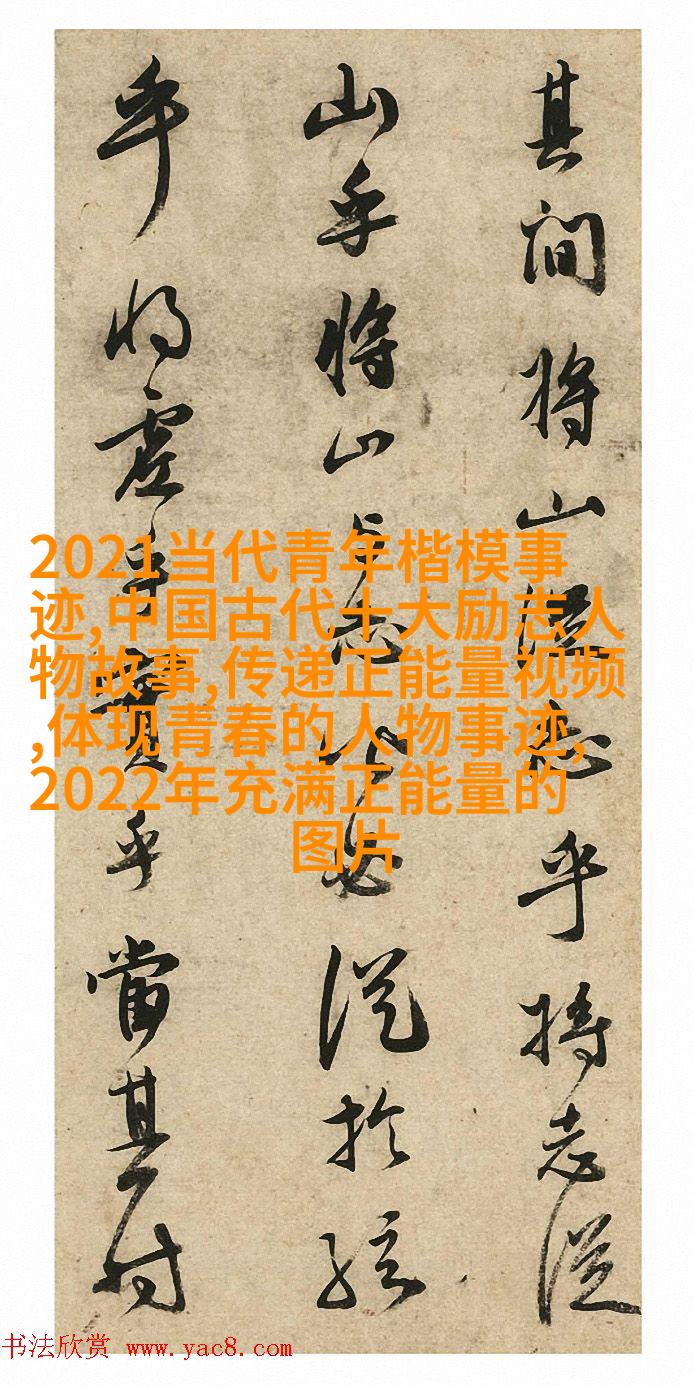 其間將山從志乎將志從
山乎將山与志必從於絃
乎將虛乎實乎當其付
2021当代青年楷模事
迹,中国古代十大励志人
物故事,传递正能量视频
,体现青春的人物事迹,
2022年充满正能量的
图片
书法欣赏 www.yac8.com